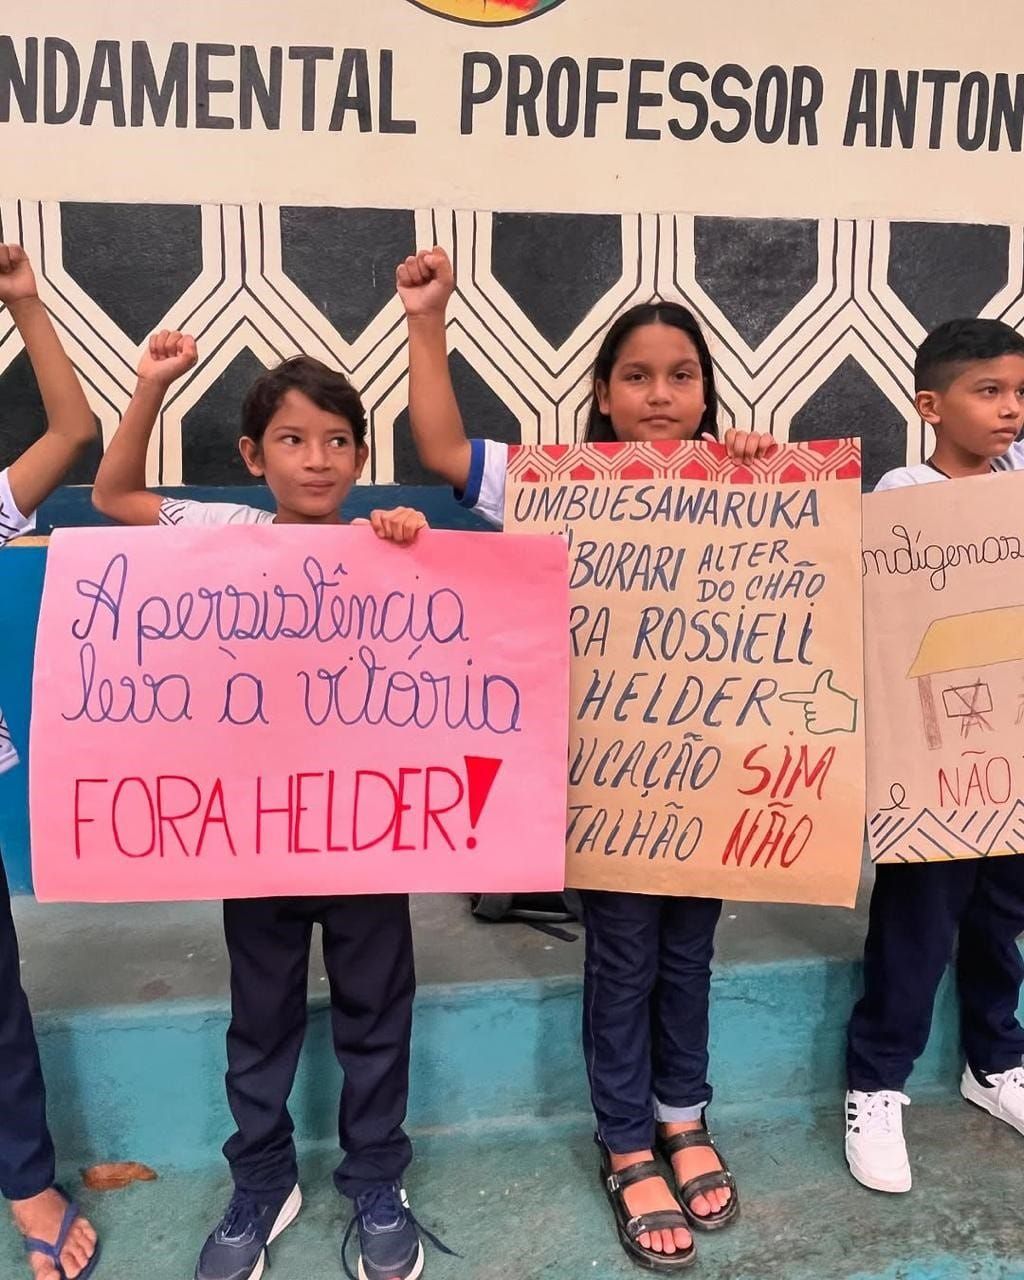 NDAMENTAL PROFESSOR ANTON
A persistência
leva à vitória
FORA HELDER!
UMBUESAWARUKA
BORARI ALTER
DO CHÃO
RA ROSSIELI
HELDER
UCAÇÃO SIM
TALHÃO NÃO
indígenas
e
NÃO